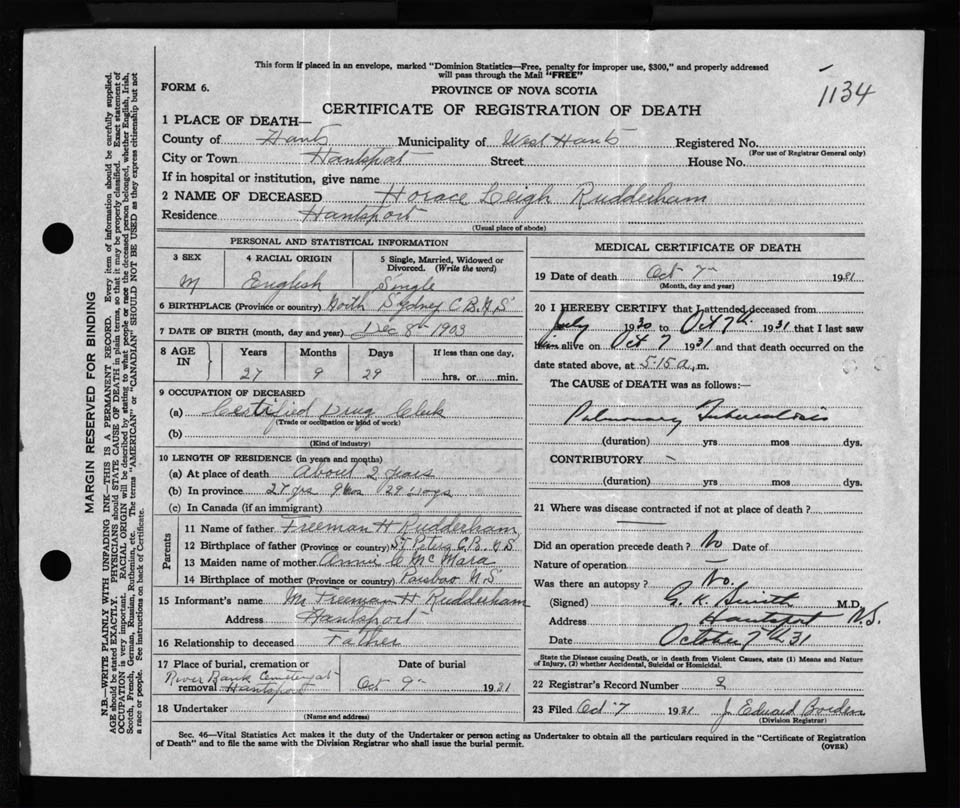 This form if placed in an envelope, marked "Dominion Statistics—Free, penalty for improper use, $300," and properly addressed
will pass through the Mail "FREE"
FORM 6.
PROVINCE OF NOVA SCOTIA
1134
CERTIFICATE OF REGISTRATION OF DEATH
1 PLACE OF DEATH—
County of Hants Municipality of West Hants Registered No.
(For use of Registrar General only)
City or Town Hantsport Street House No.
If in hospital or institution, give name
2 NAME OF DECEASED Horace Leigh Rudderham
Residence Hantsport
(Usual place of abode)
PERSONAL AND STATISTICAL INFORMATION
3 SEX 4 RACIAL ORIGIN 5 Single, Married, Widowed or Divorced. (Write the word)
M English Single
6 BIRTHPLACE (Province or country) North Sydney C.B. N.S
7 DATE OF BIRTH (month, day and year) Dec 8th 1903
8 AGE IN Years Months Days If less than one day,
27 9 29 hrs. or min.
9 OCCUPATION OF DECEASED
(a) Certified Drug Clerk
(Trade or occupation or kind of work)
(b)
(Kind of industry)
10 LENGTH OF RESIDENCE (in years and months)
(a) At place of death About 2 years
(b) In province 27 yrs 9 mos 29 days
(c) In Canada (if an immigrant)
Parents
11 Name of father Freeman H Rudderham
12 Birthplace of father (Province or country) St Peters C.B. N.S
13 Maiden name of mother Annie McMara
14 Birthplace of mother (Province or Country) N.S
15 Informant's name Mr Freeman H Rudderham
Address Hantsport
16 Relationship to deceased Father
17 Place of burial, cremation or removal River Bank Cemetery at Hantsport
Date of burial
Oct 9th 1931
18 Undertaker
(Name and address)
MEDICAL CERTIFICATE OF DEATH
19 Date of death Oct 7th 1931
(Month, day and year)
20 I HEREBY CERTIFY that I attended deceased from
July 1930 to Oct 7th 1931 that I last saw
him alive on Oct 7 1931 and that death occurred on the
date stated above, at 5.15 a. m.
The CAUSE OF DEATH was as follows:—
Pulmonary Tuberculosis
(duration) yrs mos dys.
CONTRIBUTORY —
(duration) yrs mos dys.
21 Where was disease contracted if not at place of death?
Did an operation precede death? No Date of
Nature of operation —
Was there an autopsy? No.
(Signed) G. K. Smith M.D.
Address Hantsport N.S.
Date October 7th 31
State the Disease causing Death, or in death from Violent Causes, state (1) Means and Nature
of Injury, (2) whether Accidental, Suicidal or Homicidal.
22 Registrar's Record Number 2
23 Filed Oct 7 1931 J Edward Borden
(Division Registrar)
Sec. 46—Vital Statistics Act makes it the duty of the Undertaker or person acting as Undertaker to obtain all the particulars required in the "Certificate of Registration
of Death" and to file the same with the Division Registrar who shall issue the burial permit.
(OVER)
MARGIN RESERVED FOR BINDING
N.B.—WRITE PLAINLY WITH UNFADING INK—THIS IS A PERMANENT RECORD. Every item of information should be carefully supplied.
AGE should be stated EXACTLY. PHYSICIANS should STATE CAUSE OF DEATH in plain terms, so that it may be properly classified. Exact statement of
OCCUPATION is very important. RACIAL ORIGIN will be described by stating to what people or race the deceased person belonged, whether English, Irish,
Scotch, French, German, Russian, Ruthenian, etc. The terms "AMERICAN" or "CANADIAN" SHOULD NOT BE USED as they express citizenship but not
a race or people. See instructions on back of Certificate.